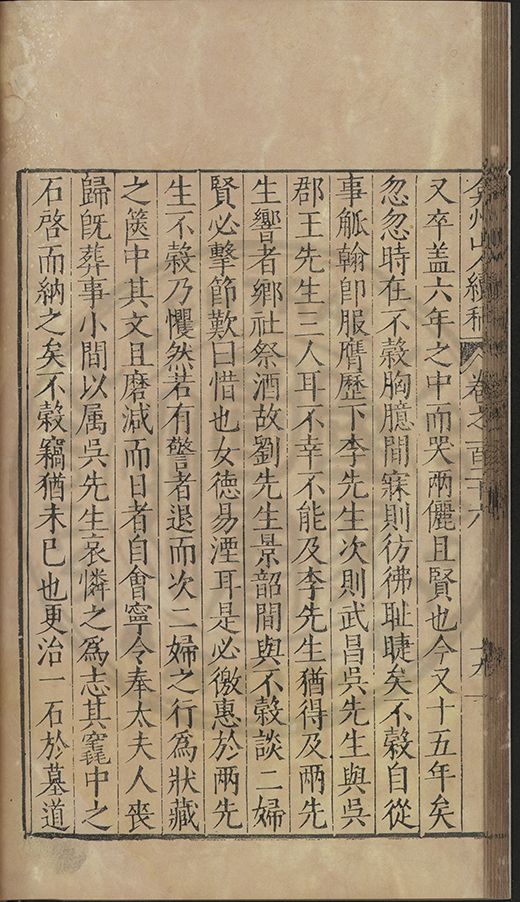 弇州山人續稿 卷之一百十六 十九
又卒盖六年之中而哭兩儷且賢也今又十五年矣
忽忽時在不榖胸臆間寐則彷彿耻睫矣不榖自從
事觚翰卽服膺歷下李先生次則武昌吳先生與吳
郡王先生三人耳不幸不能及李先生猶得及兩先
生響者鄉社祭酒故劉先生景韶間與不榖談二婦
賢必擊節歎曰惜也女德易湮耳是必徼惠於兩先
生不榖乃懼然若有警者退而次二婦之行爲狀藏
之篋中其文且磨滅而日者自會寧令奉太夫人喪
歸旣葬事小間以属吳先生哀憐之爲志其窀中之
石啓而納之矣不榖竊猶未已也更治一石於墓道